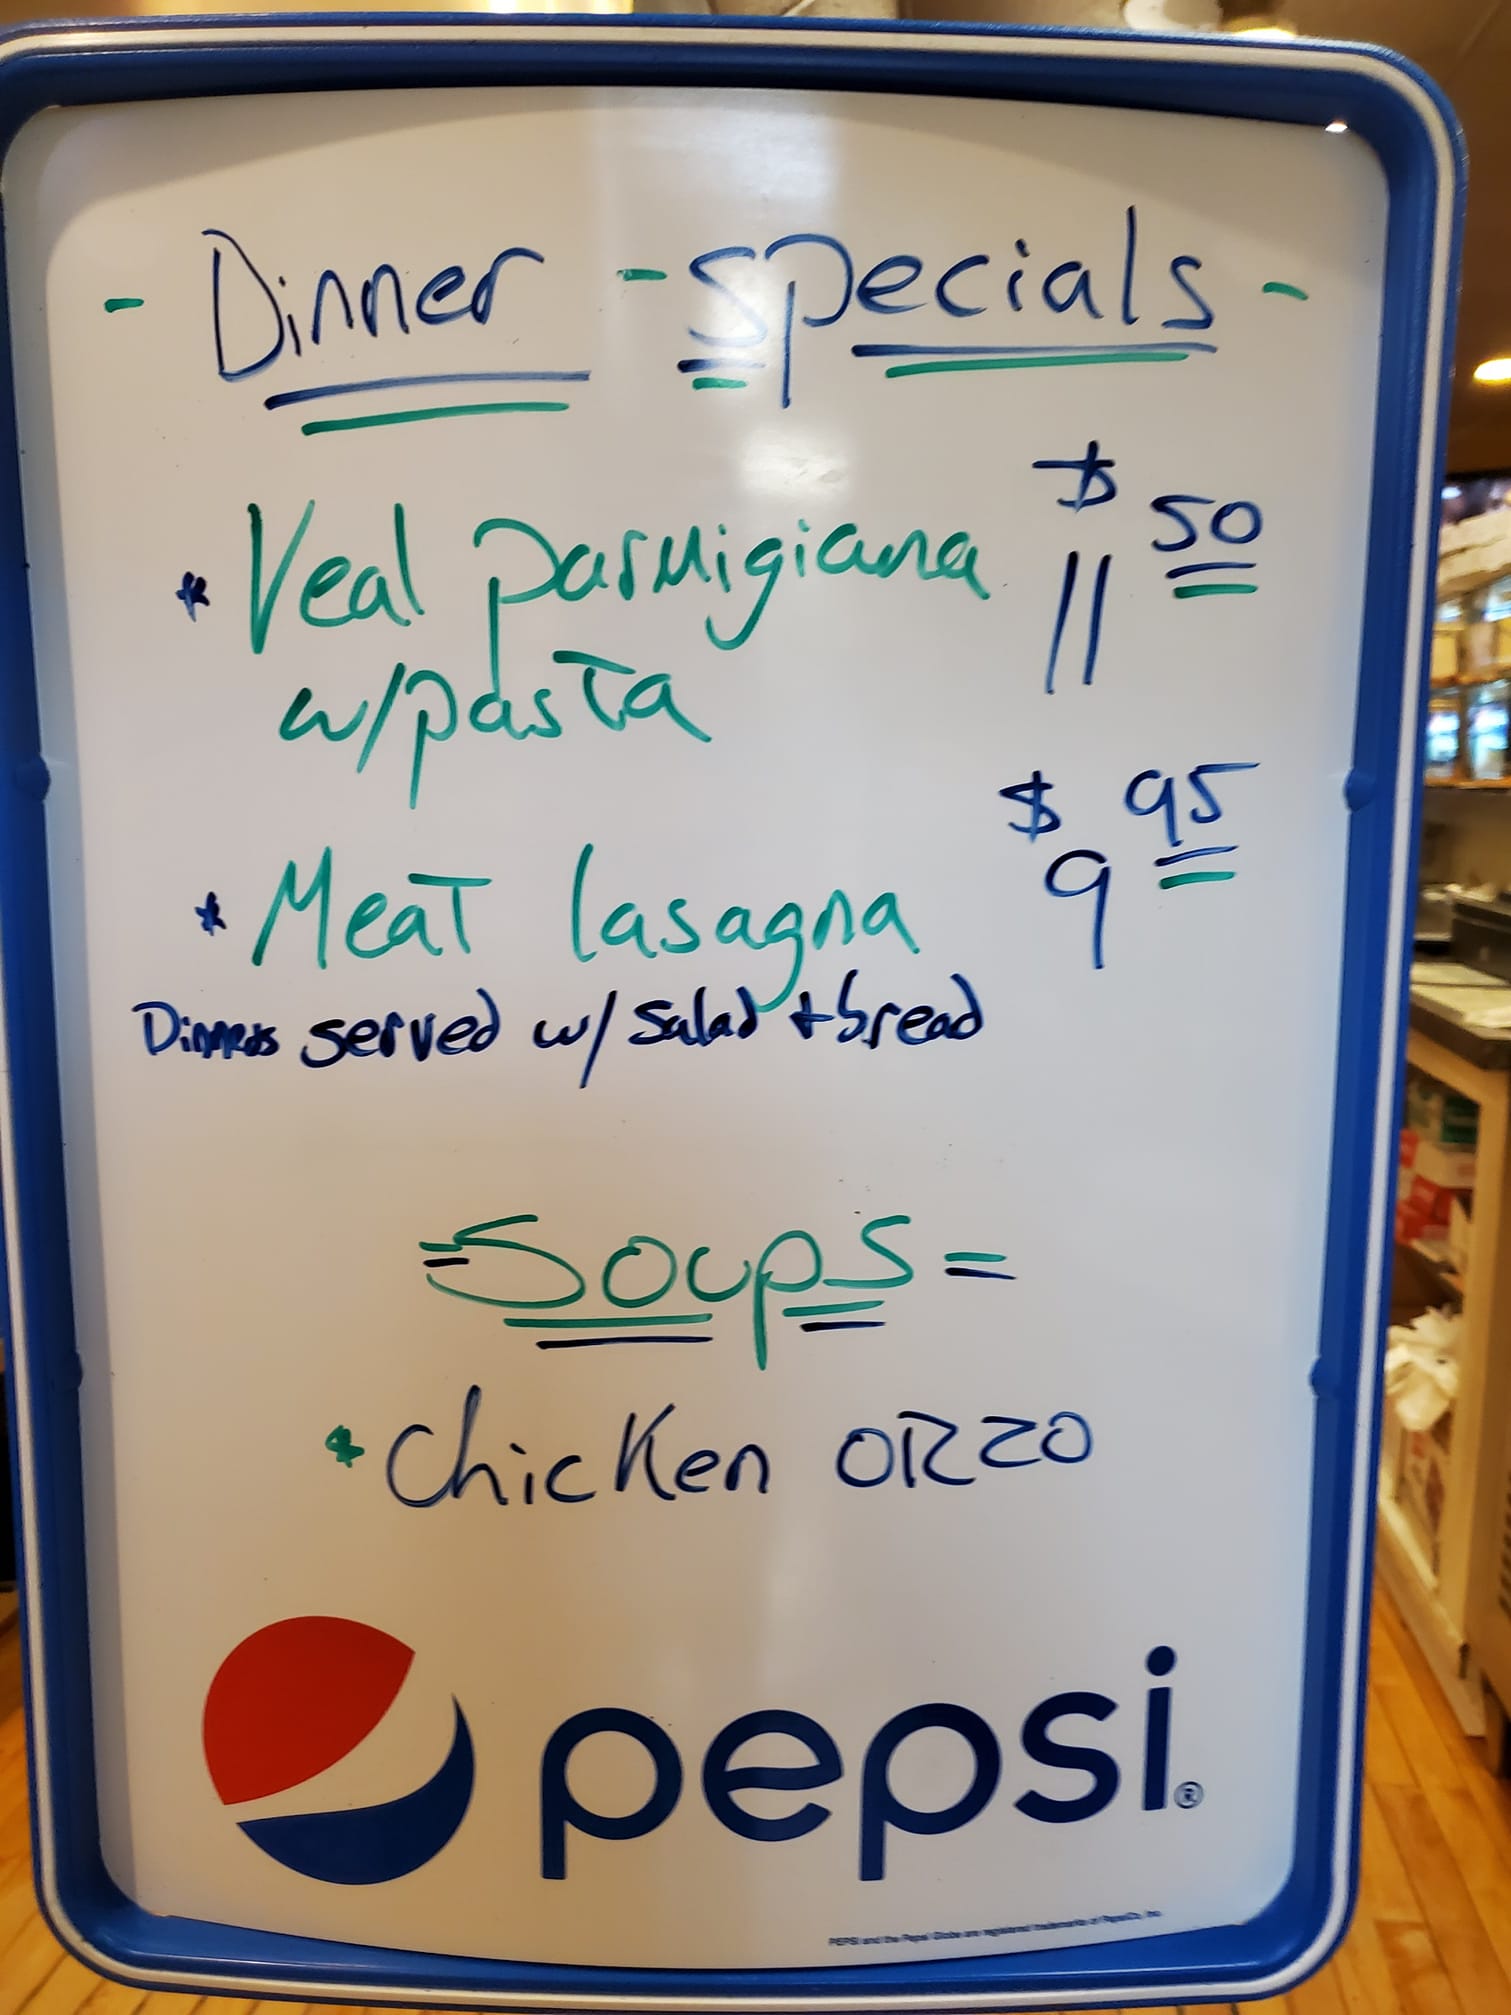 - Dinner - Specials -
* Veal parmigiana $11 50
w/pasta
* Meat lasagna $9 95
Dinners served w/ salad + bread
= Soups =
* Chicken ORZO
pepsi®
PEPSI and the Pepsi Globe are registered trademarks of PepsiCo, Inc.